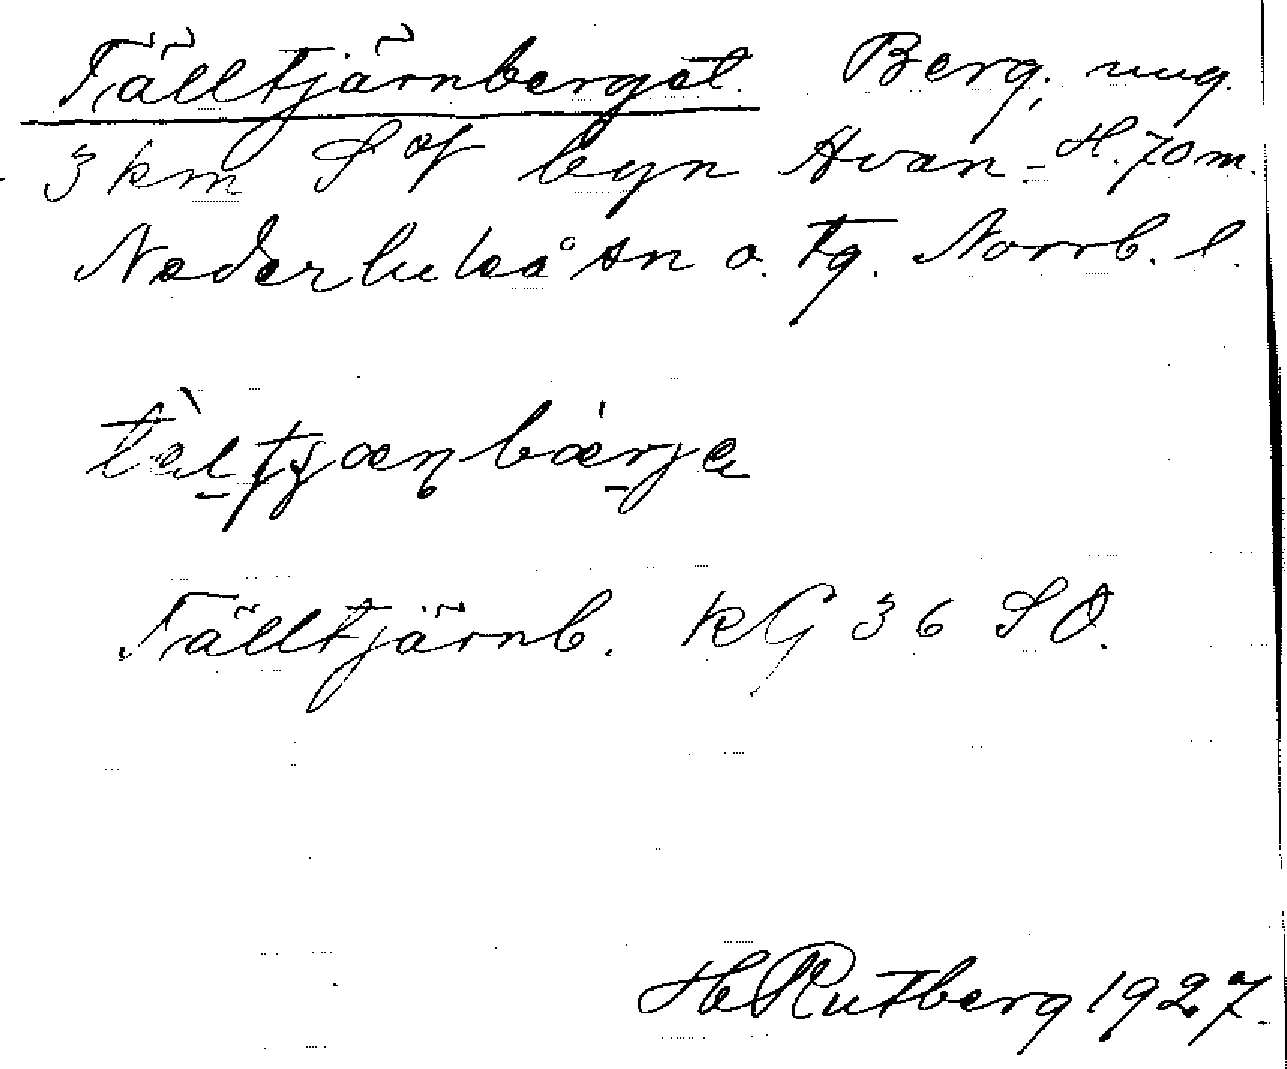 Fälltjärnberget. Berg, ung.
3 km S of byn Avan - H. 70 m.
Nederluleå sn o. tg. Norrb. l.
Fälltjärnb. KG 36 SO.
H Rutberg 1927.